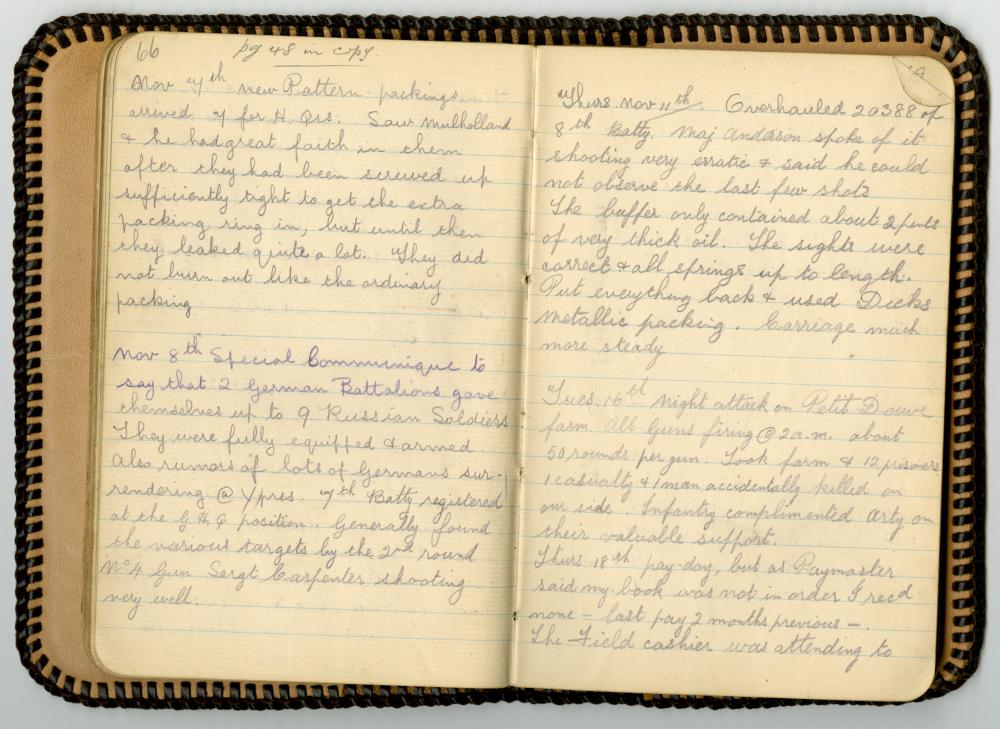 66 pg 48 in copy.
Nov 7th new Pattern packings
arrived 7 for H. Qrs. Saw Mulholland
& he had great faith in them
after they had been screwed up
sufficiently tight to get the extra
packing ring in, but until then
they leaked quite a lot. They did
not burn out like the ordinary
packing.
Nov 8th Special Communique to
say that 2 German Battalions gave
themselves up to 9 Russian Soldiers
They were fully equipped & armed.
Also rumors of lots of Germans sur-
rendering @ Ypres. 7th Batty registered
at the G.H.Q position. Generally found
the various targets by the 2nd round
No 4 Gun Sergt Carpenter shooting
very well.
Thurs. Nov 11th. Overhauled 20388 of
8th Batty. Maj Anderson spoke of it
shooting very erratic & said he could
not observe the last few shots
The buffer only contained about 2 pints
of very thick oil. The sights were
correct & all springs up to length.
Put everything back & used Dicks
Metallic packing. Carriage much
more steady
Tues. 16th Night attack on Petit Douve
farm. All Guns firing @ 2 a.m. about
50 rounds per gun. Took farm & 12 prisoners
1 casualty & 1 man accidentally killed on
our side. Infantry complimented Arty on
their valuable support.
Thurs. 18th pay-day, but as Paymaster
said my book was not in order I recd
none – last pay 2 months previous –.
The Field cashier was attending to